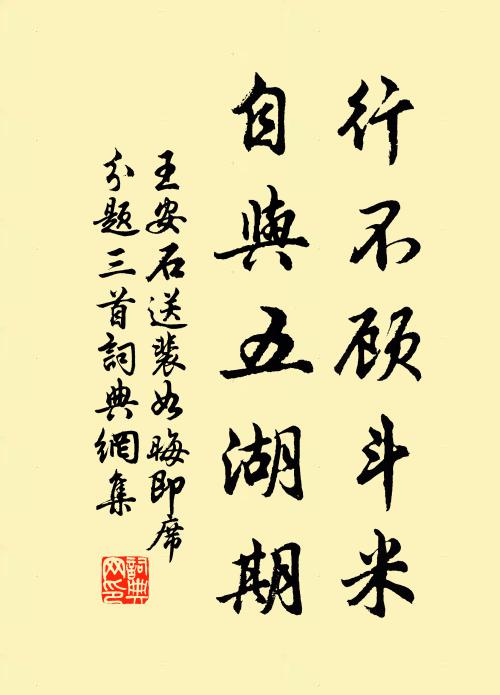 行不顾斗米
自與五湖期
王安石送裴如晦即席
分题三首詞典網集
詞典
网印